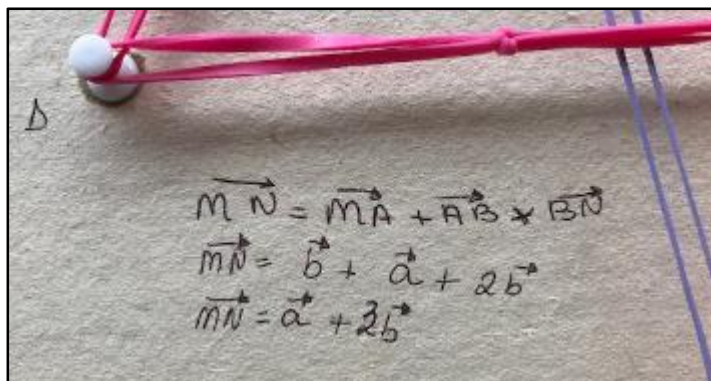 D
MN⃗ = MA⃗ + AB⃗ + BN⃗
MN⃗ = b⃗ + a⃗ + 2b⃗
MN⃗ = a⃗ + 3b⃗